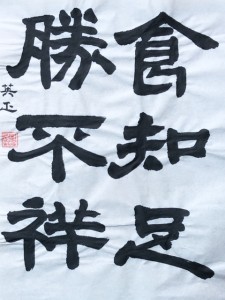 食知足
勝不祥
英正